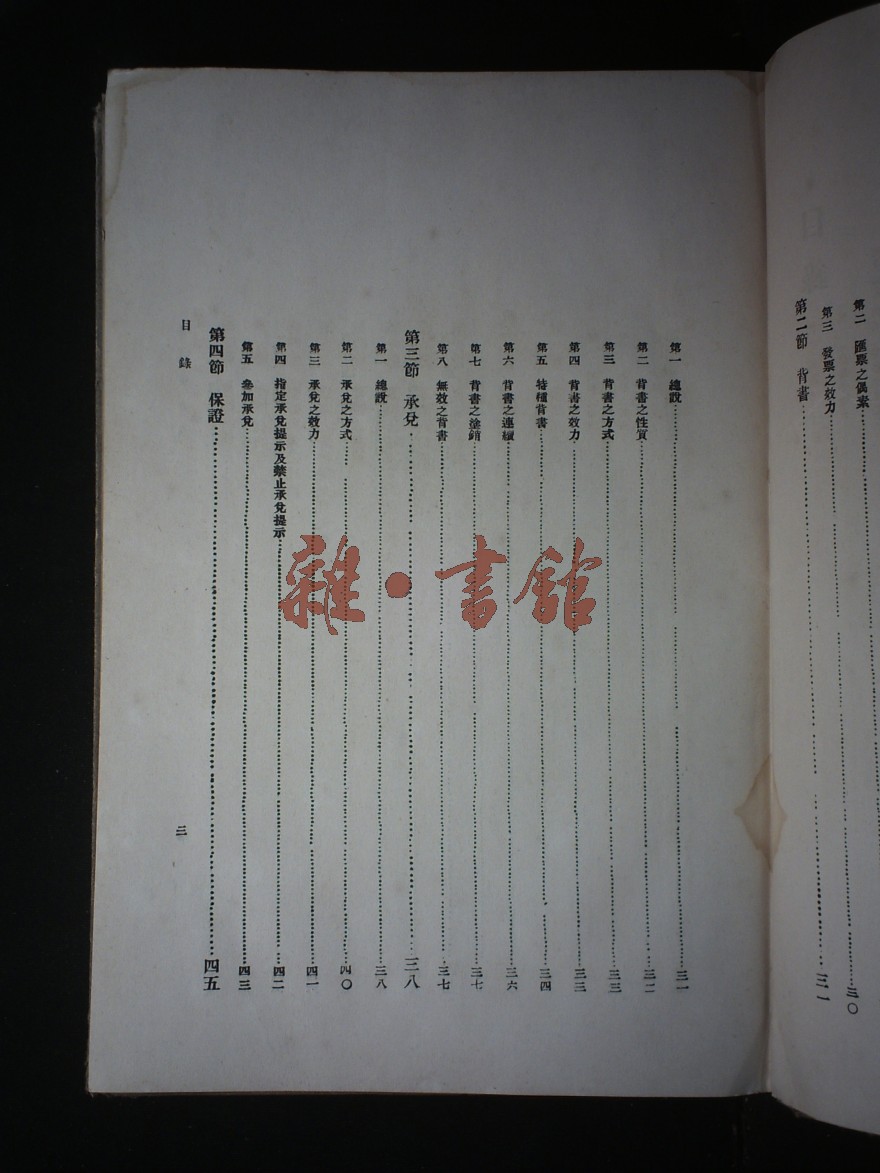 第二 匯票之偶素……三〇
第三 發票之效力
第二節 背書……三一
第一 總說……三一
第二 背書之性質……三二
第三 背書之方式……三三
第四 背書之效力……三三
第五 特種背書……三四
第六 背書之連續……三六
第七 背書之塗銷……三七
第八 無效之背書……三七
第三節 承兌……三八
第一 總說……三八
第二 承兌之方式……四〇
第三 承兌之效力……四一
第四 指定承兌提示及禁止承兌提示……四二
第五 參加承兌……四三
第四節 保證……四五
目錄
三
雜·書館